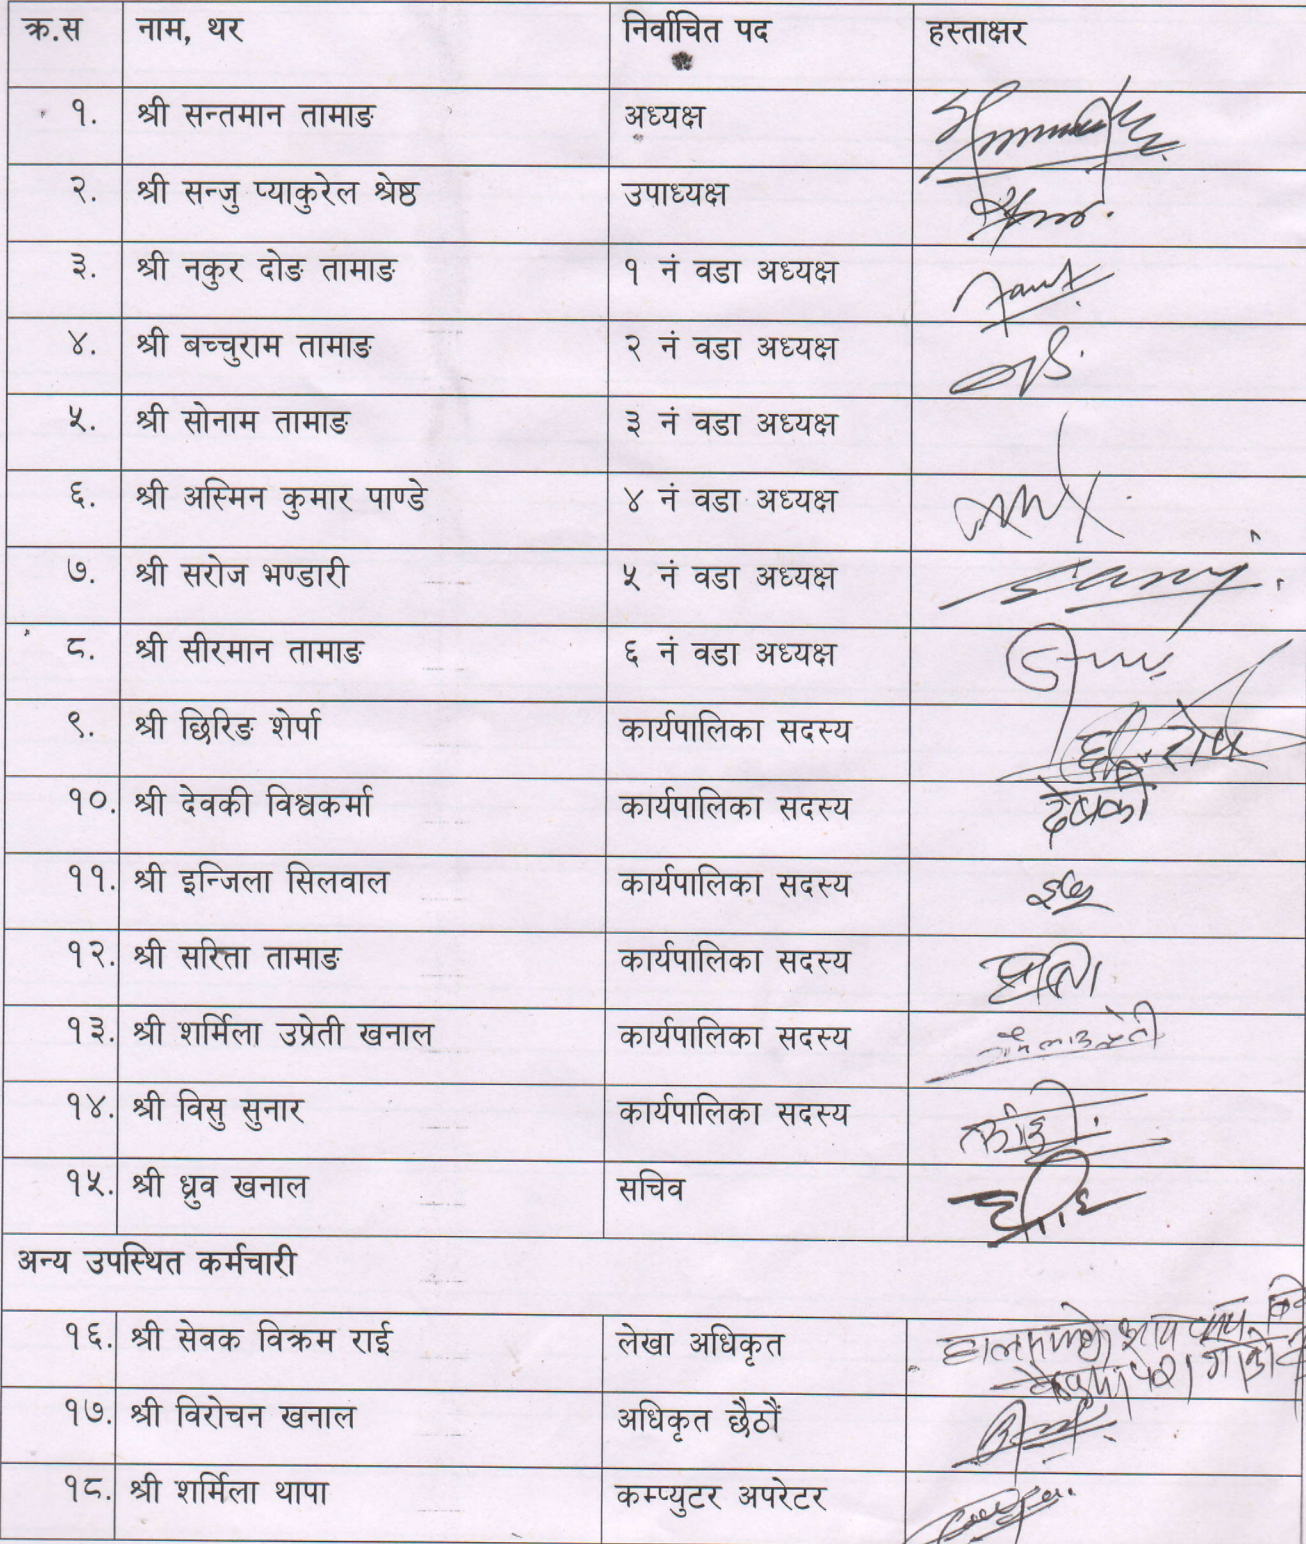 क्र.स नाम, थर निर्वाचित पद हस्ताक्षर
१. श्री सन्तमान तामाङ अध्यक्ष
२. श्री सन्जु प्याकुरेल श्रेष्ठ उपाध्यक्ष
३. श्री नकुर दोङ तामाङ १ नं वडा अध्यक्ष
४. श्री बच्चुराम तामाङ २ नं वडा अध्यक्ष
५. श्री सोनाम तामाङ ३ नं वडा अध्यक्ष
६. श्री अस्मिन कुमार पाण्डे ४ नं वडा अध्यक्ष
७. श्री सरोज भण्डारी ५ नं वडा अध्यक्ष
८. श्री सीरमान तामाङ ६ नं वडा अध्यक्ष
९. श्री छिरिङ शेर्पा कार्यपालिका सदस्य
१०. श्री देवकी विश्वकर्मा कार्यपालिका सदस्य देवकी
११. श्री इन्जिला सिलवाल कार्यपालिका सदस्य
१२. श्री सरिता तामाङ कार्यपालिका सदस्य
१३. श्री शर्मिला उप्रेती खनाल कार्यपालिका सदस्य
१४. श्री विसु सुनार कार्यपालिका सदस्य
१५. श्री ध्रुव खनाल सचिव
अन्य उपस्थित कर्मचारी
१६. श्री सेवक विक्रम राई लेखा अधिकृत
१७. श्री विरोचन खनाल अधिकृत छैठौं
१८. श्री शर्मिला थापा कम्प्युटर अपरेटर